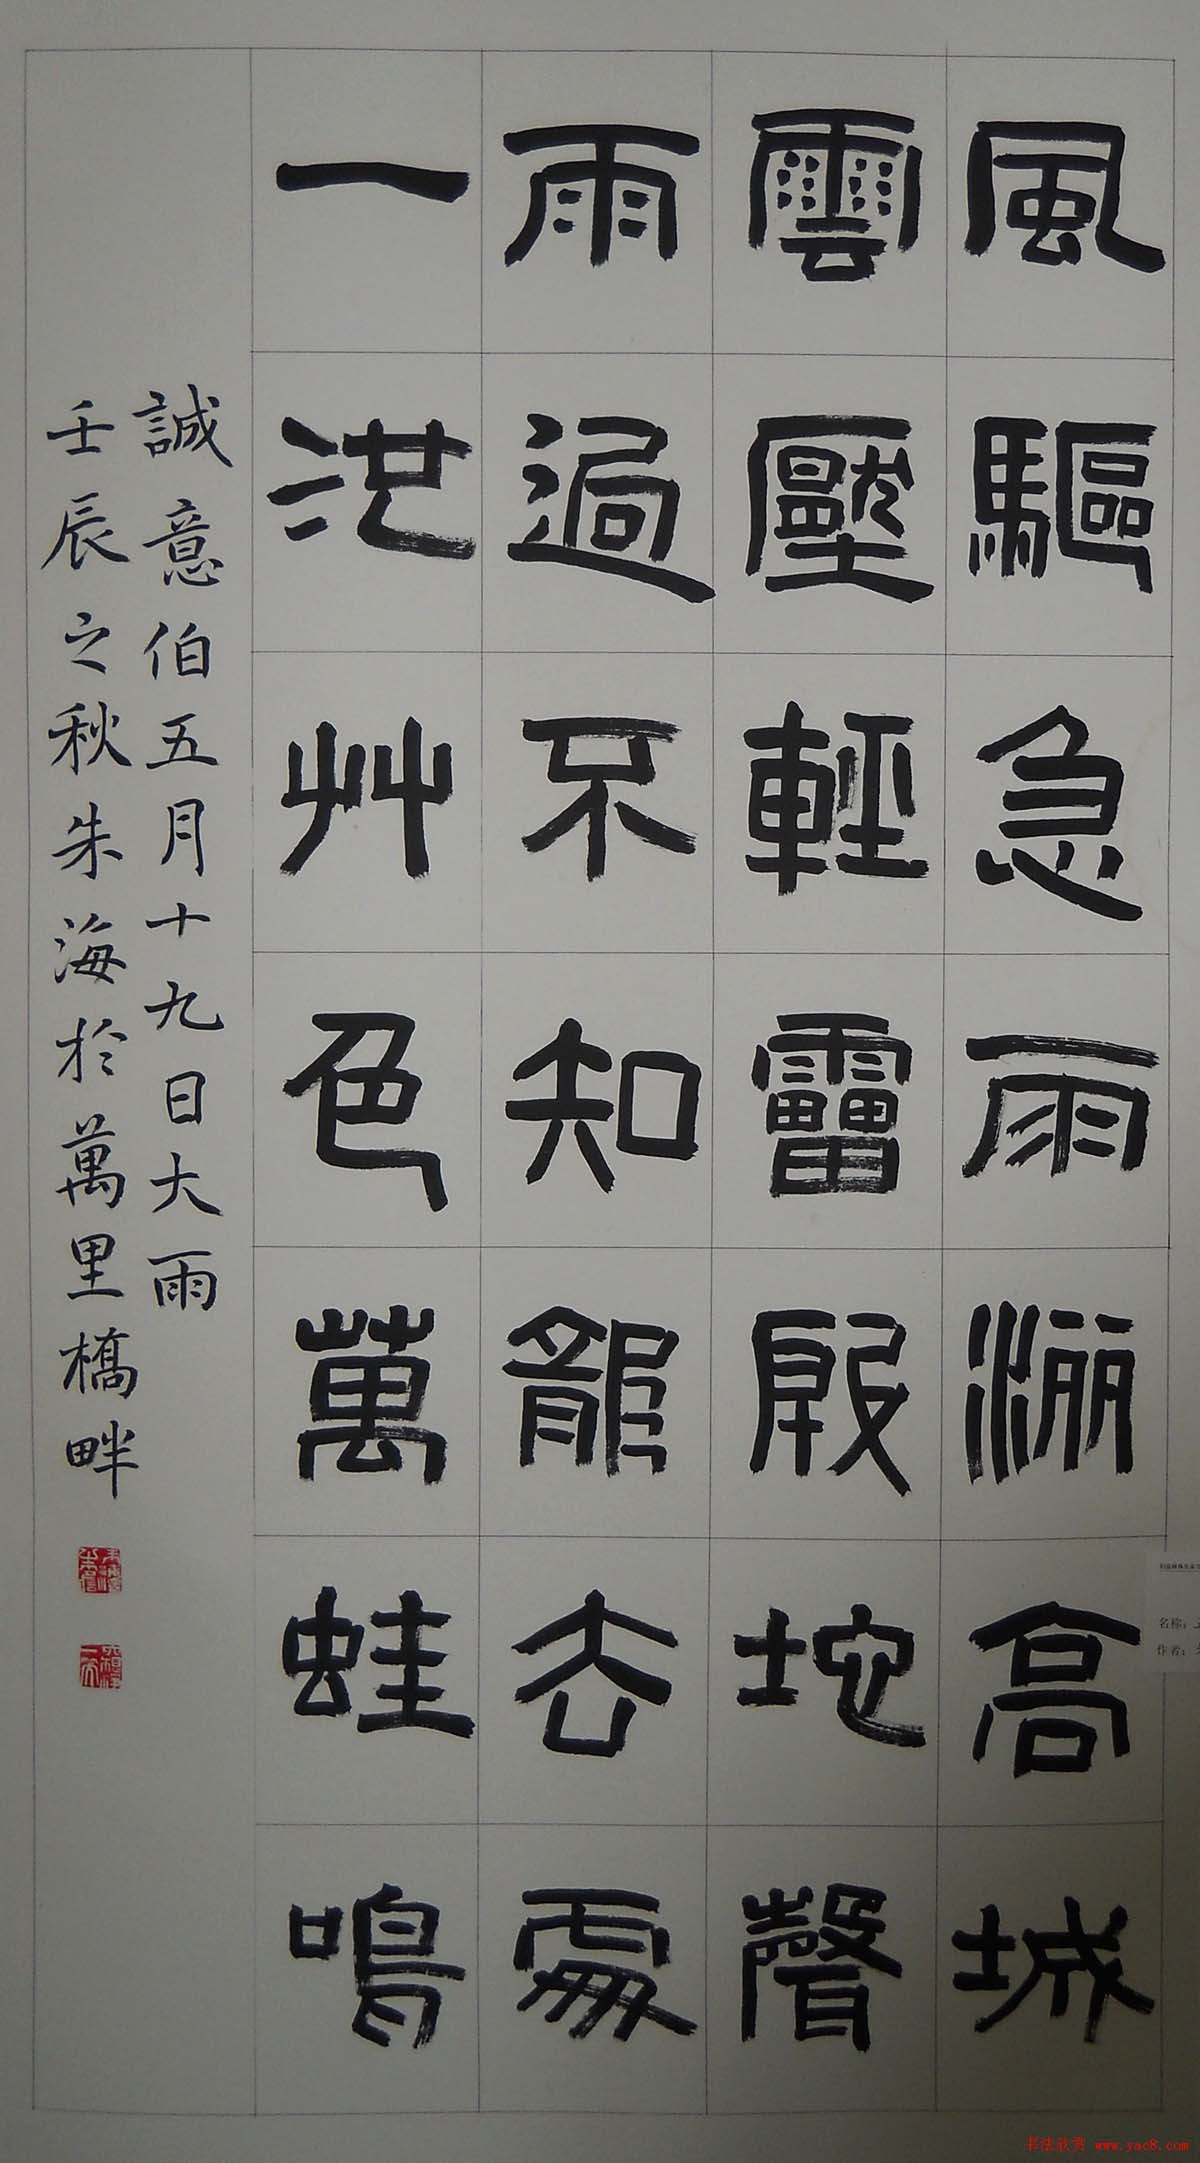 風驅急雨灑高城
雲壓輕雷殷地聲
雨過不知龍去處
一池艸色萬蛙鳴
誠意伯五月十九日大雨
壬辰之秋朱海於萬里橋畔
名称：
作者：
书法欣赏 www.yac8.com